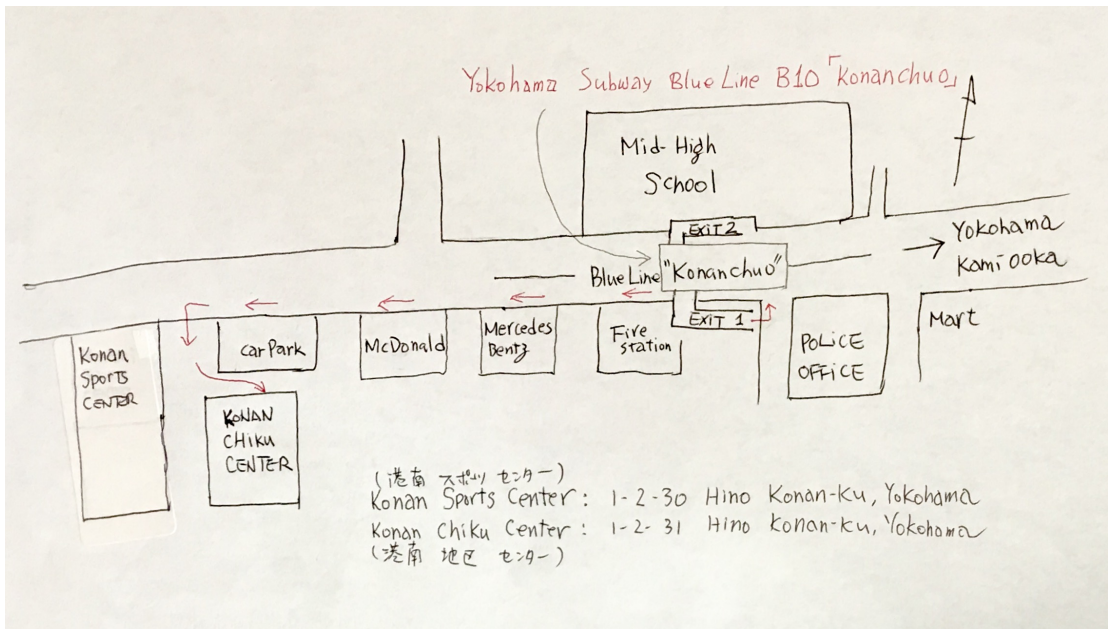 Yokohama Subway Blue Line B10「Konanchuo」
Mid-High
School
EXIT 2
Yokohama
Kamiooka
Blue Line
"Konanchuo"
EXIT 1
Konan
Sports
CENTER
car Park
McDonald
Mercedes
Bentz
Fire
station
POLiCE
OFFiCE
Mart
KONAN
CHiKU
CENTER
(港南 スポーツ センター)
Konan Sports Center: 1-2-30 Hino Konan-Ku, Yokohama
Konan Chiku Center: 1-2-31 Hino Konan-Ku, Yokohama
(港南 地区 センター)